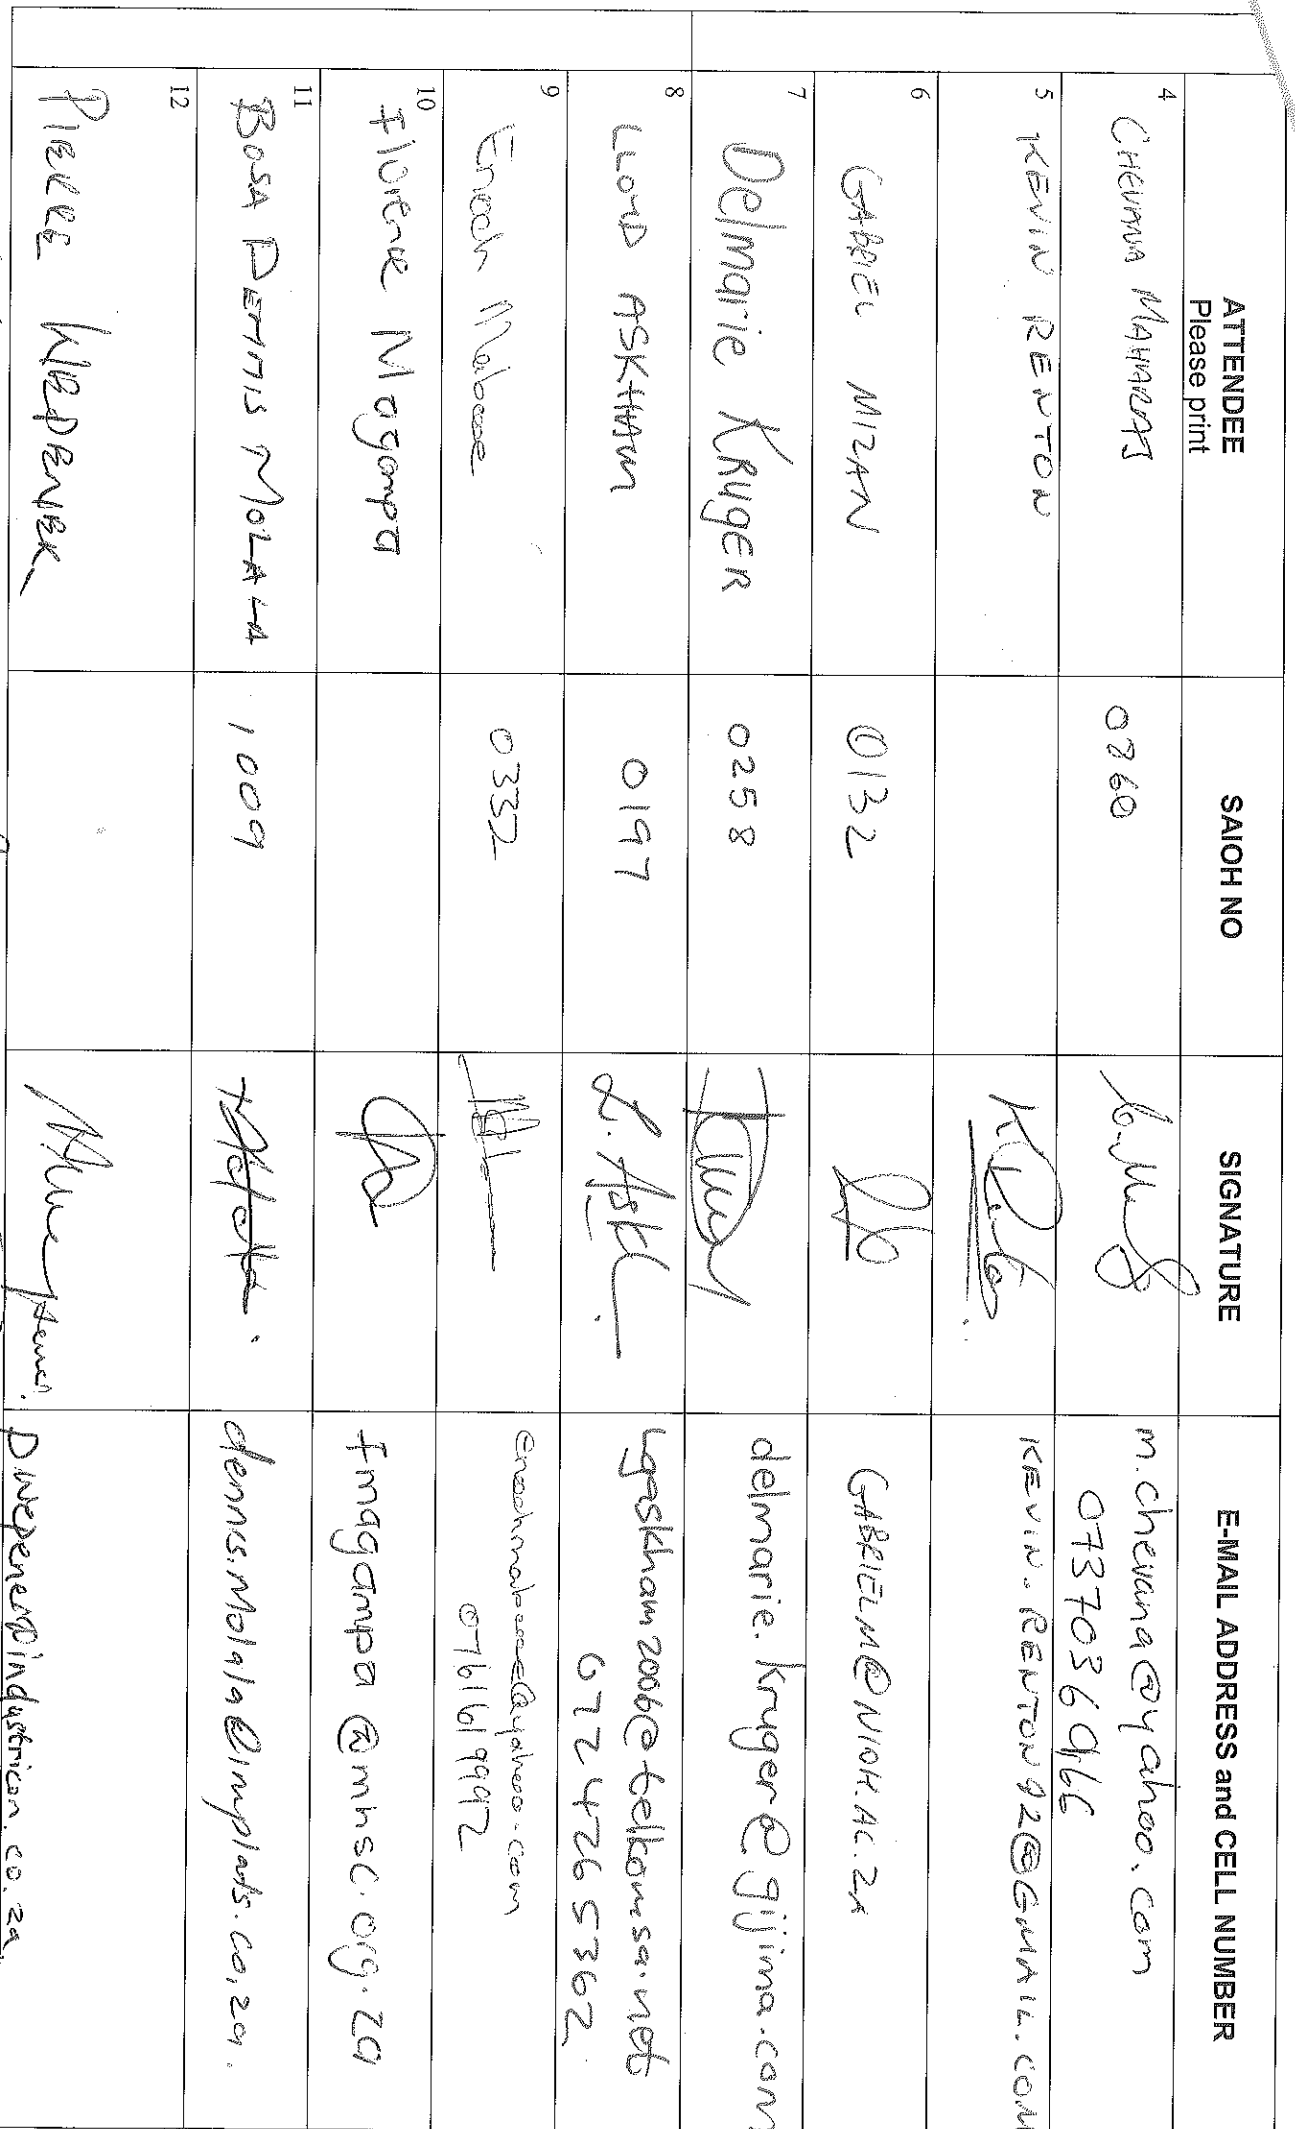 ATTENDEE SAIOH NO SIGNATURE E-MAIL ADDRESS and CELL NUMBER
Please print
4 CHEVANA MAHARAJ 0860 m.chevana@yahoo.com
0737036966
5 KEVIN RENTON KEVIN.RENTON92@GMAIL.COM
6 GABRIEL MIZAN 0132 GABRIELM@NIOH.AC.ZA
7 Delmarie KRUGER 0258 delmarie.Kruger@gijima.com
8 LLOYD ASKHAM 0197 L. Askh Lgaskham2006@telkomsa.net
0724265362
9 Enoch 0332
0761619992
10 Florence Magampa fmagampa@mhsc.org.za
11 BOSA DENNIS MOLALA 1009 dennis.Molala@implats.co.za.
12 PIERRE WEPENER pwepener@industricon.co.za